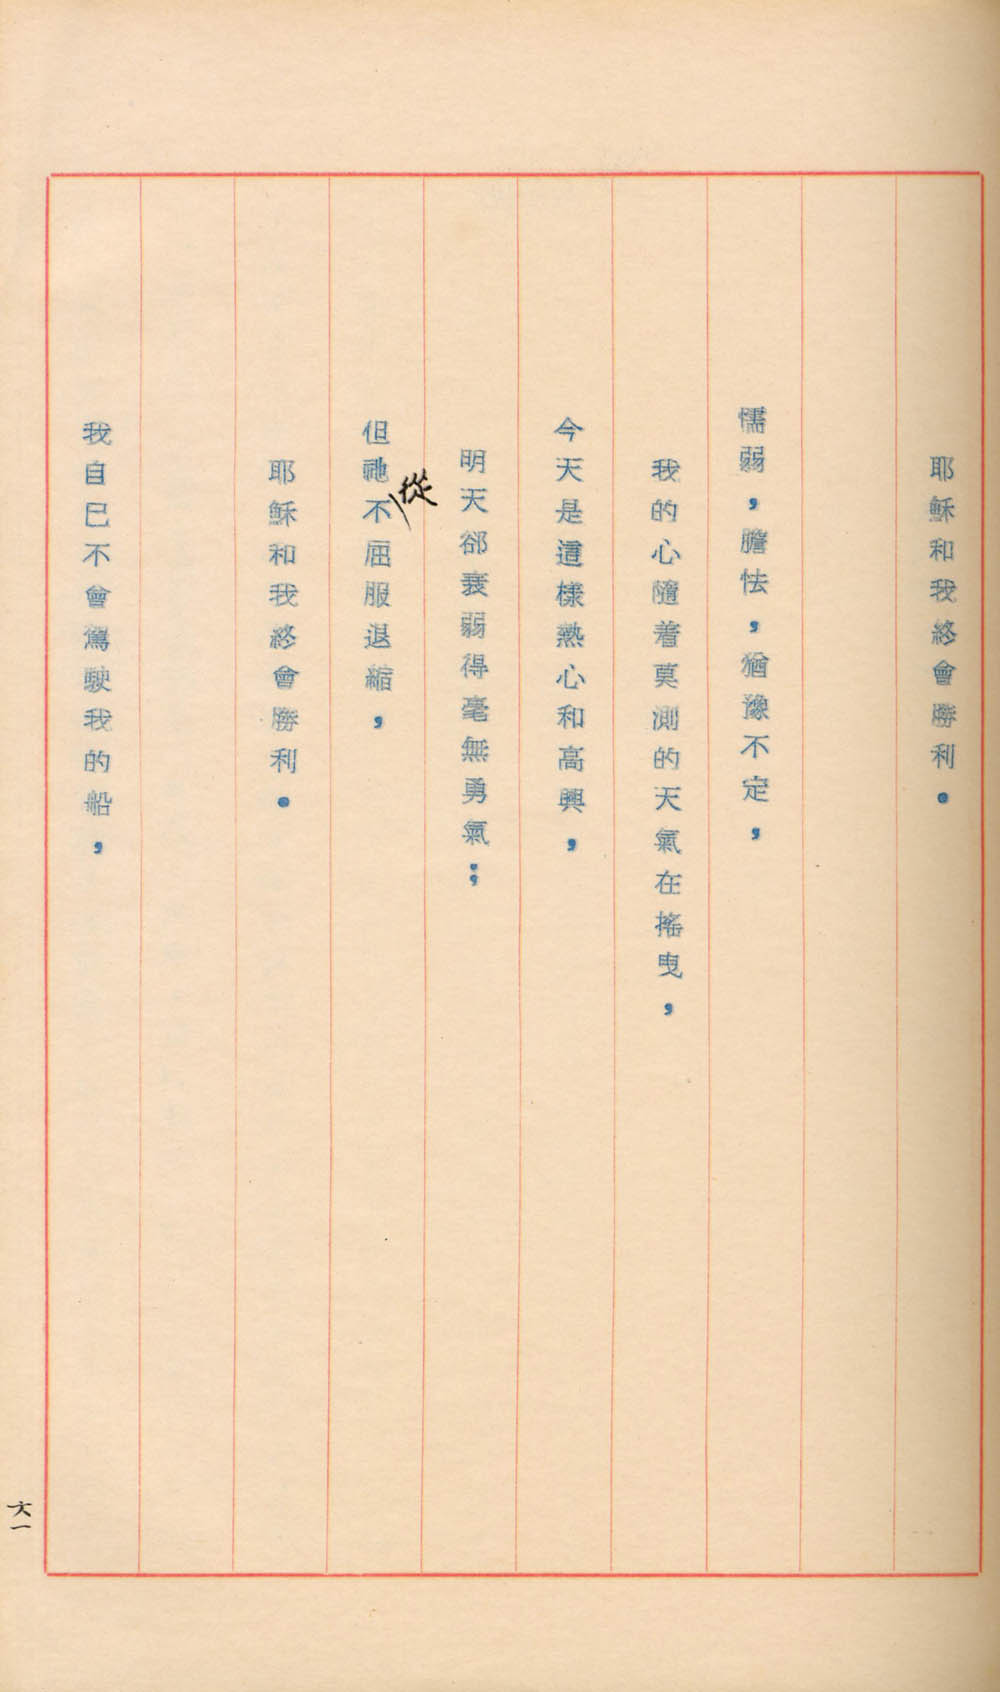 耶穌和我終會勝利。
懦弱，膽怯，猶豫不定，
我的心隨着莫測的天氣在搖曳，
今天是這樣熱心和高興，
明天卻衰弱得毫無勇氣；
但祂從不屈服退縮，
耶穌和我終會勝利。
我自己不會駕駛我的船，
六一